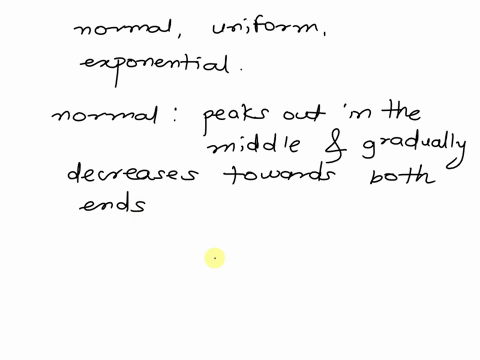 normal, uniform,
exponential.
normal : peaks out in the
middle & gradually
decreases towards both
ends